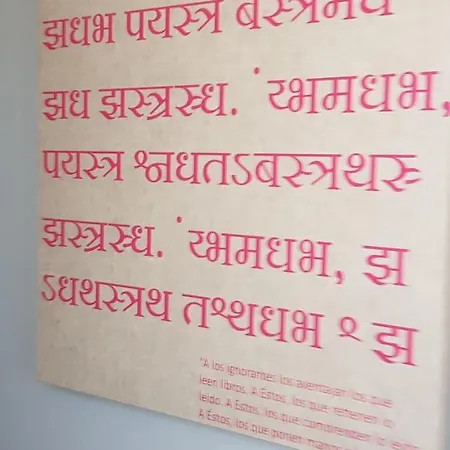 झधभ पयस्त्र बस्त्रमध
झध झस्त्रस्ध. ं य्भमधभ,
पयस्त्र श्नधतऽबस्त्रथस्
झस्त्रस्ध. ं य्भमधभ, झ
ऽधथस्त्रथ तश्थधभ श् झ
"A los ignorantes los aventajan los que
leen libros. A Éstos, los que retienen lo
leído. A Éstos, los que comprenden lo
A Éstos, los que ponen